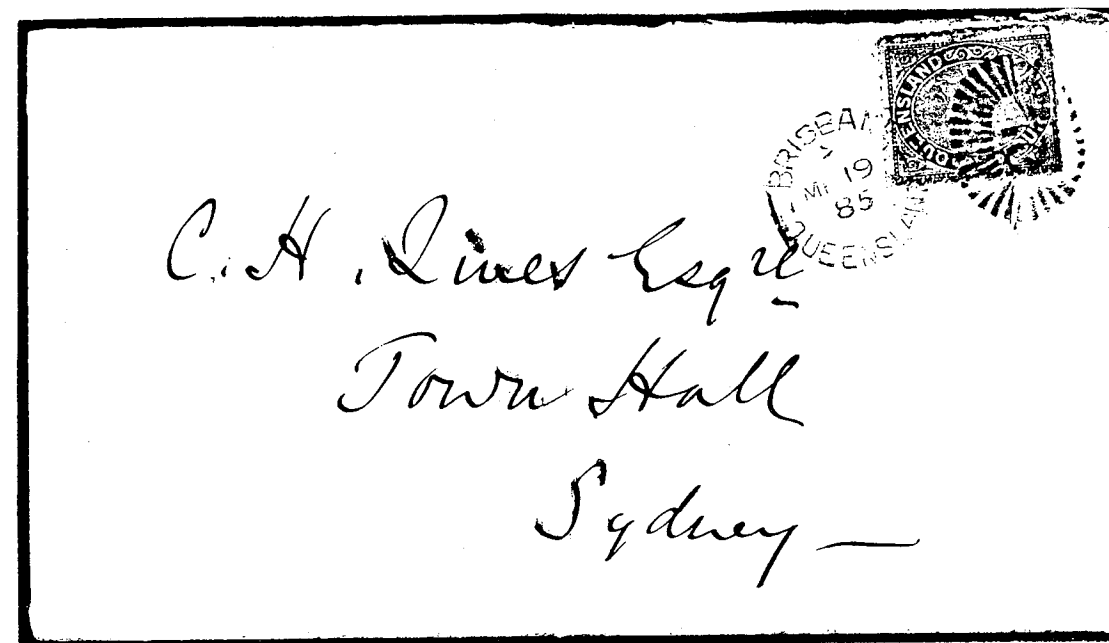 QUEENSLAND
BRISBAN
19
85
QUEENSLAN
C. H. Esqre
Town Hall
Sydney —